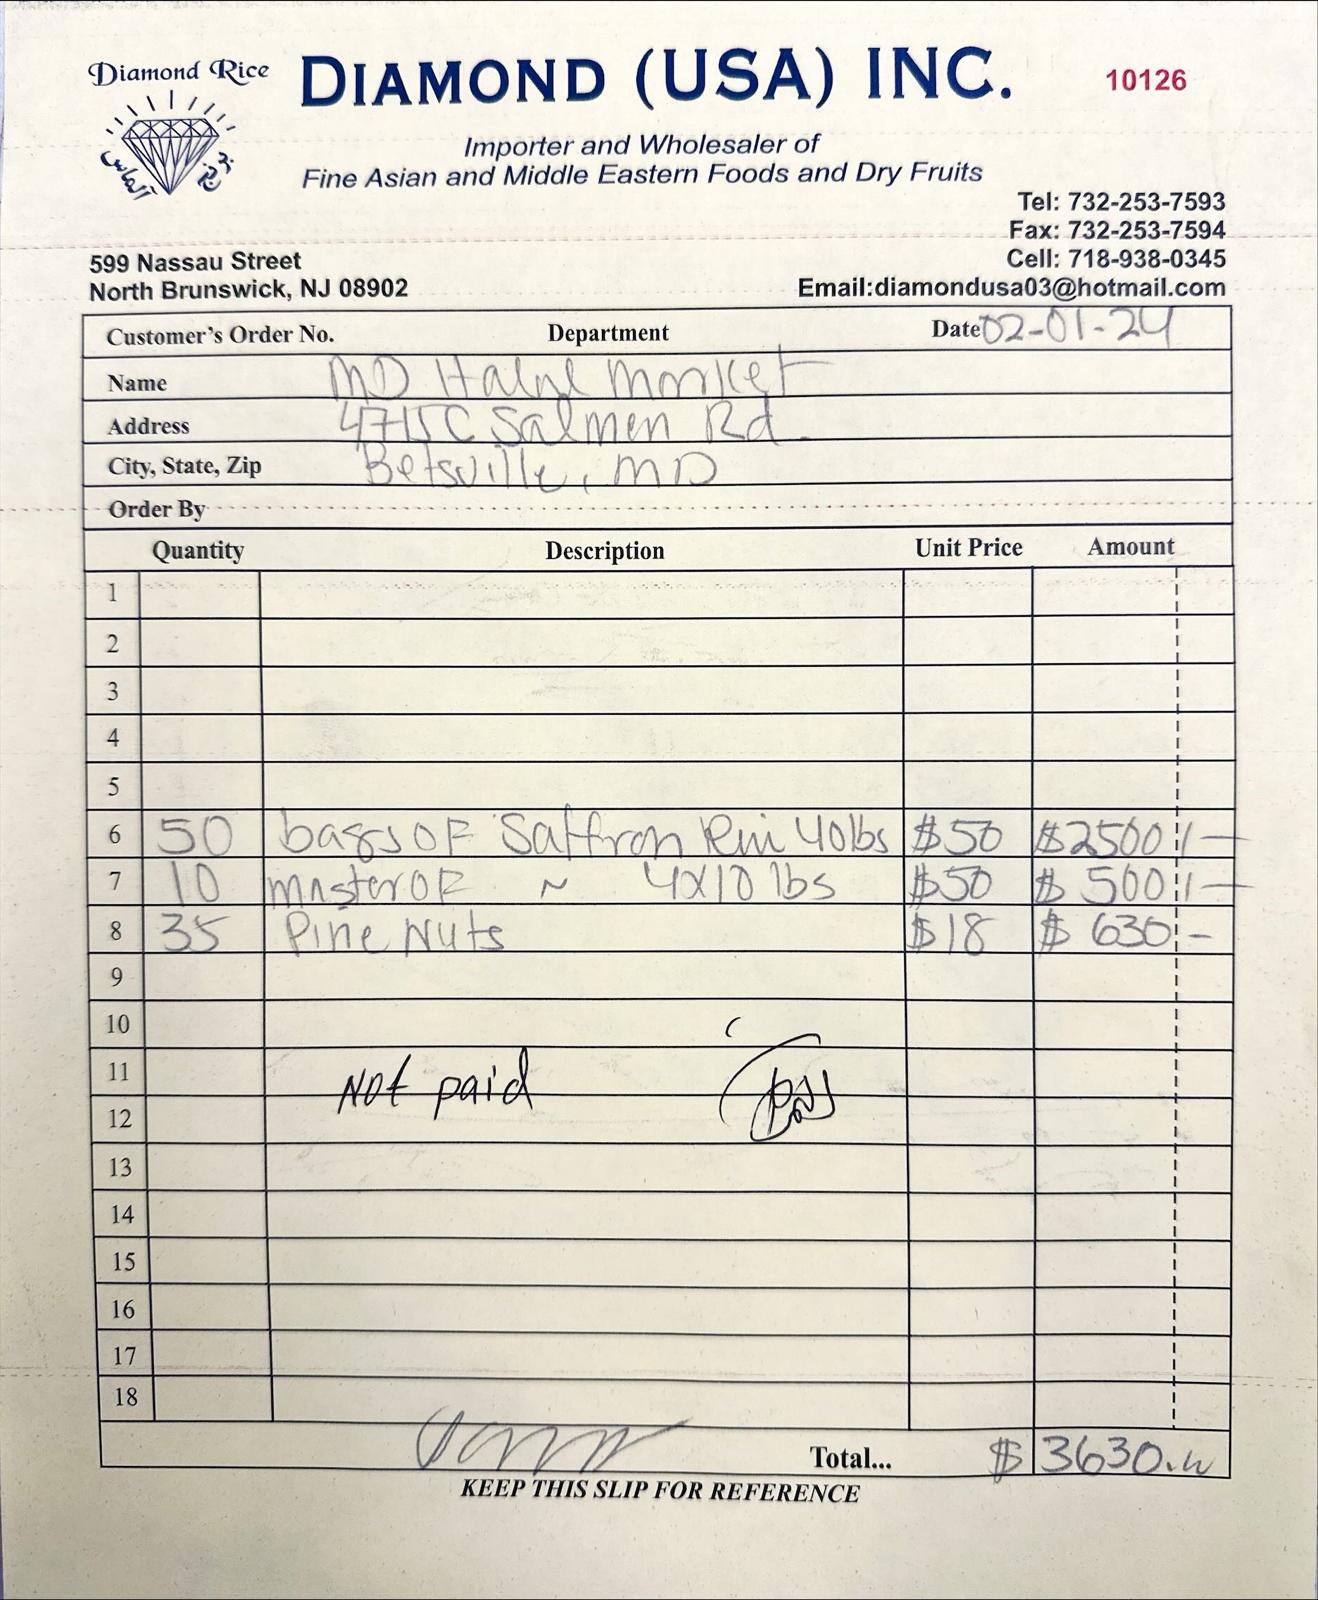 Diamond Rice
DIAMOND (USA) INC.
10126
Importer and Wholesaler of
Fine Asian and Middle Eastern Foods and Dry Fruits
الماس
Tel: 732-253-7593
Fax: 732-253-7594
Cell: 718-938-0345
Email:diamondusa03@hotmail.com
599 Nassau Street
North Brunswick, NJ 08902
Customer's Order No. Department Date 02-01-24
Name MD Halal Market
Address 4715C Salmen Rd.
City, State, Zip Betsville, MD
Order By
Quantity Description Unit Price Amount
1
2
3
4
5
6 50 bags OF Saffron 40lbs $50 $2500/-
7 10 master OF ~ 4x10 lbs $50 $ 500/-
8 35 Pine Nuts $18 $ 630-
9
10
11
Not paid
12
13
14
15
16
17
18
Total... $ 3630.
KEEP THIS SLIP FOR REFERENCE